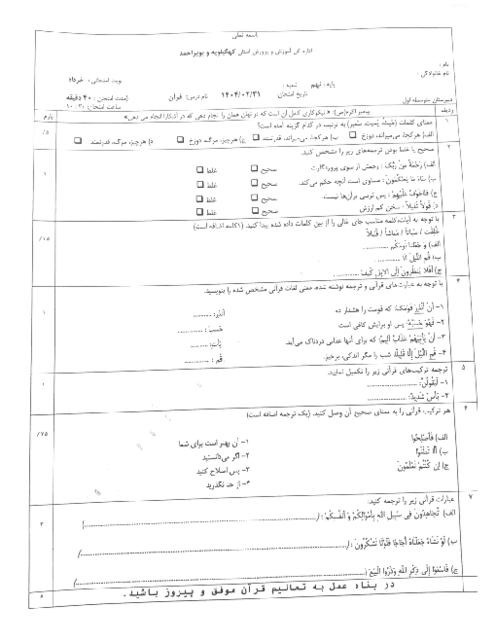 باسمه تعالی
اداره کل آموزش و پرورش استان کهگیلویه و بویراحمد
نام :
نام خانوادگی :
پایه : نهم
نوبت امتحانی : خرداد
دبیرستان متوسطه اول
تاریخ امتحان: ۱۴۰۴/۰۲/۳۱
نام درس: قرآن
مدت امتحان: ۴۰ دقیقه
ساعت امتحان: ۱۰:۳۰
ردیف
پیامبر اکرم(ص): « نیکوکاری کامل آن است که در نهان همان را انجام دهی که در آشکارا انجام می دهی»
بارم
۱
معنای کلمات به ترتیب در کدام گزینه آمده است؟
الف) هرکجا، می‌میراند، دوزخ ب) هرکجا، می‌میراند، قدرتمند ج) هرچیز، مرگ، دوزخ د) هرچیز، مرگ، قدرتمند
/۵
۲
صحیح یا غلط بودن ترجمه‌های زیر را مشخص کنید.
الف) رَحْمَةً مِنْ رَبِّكَ : رحمتی از سوی پروردگارت صحیح غلط
ب) سَاءَ مَا يَحْكُمُونَ: مساوی است آنچه حکم می‌کند. صحیح غلط
ج) فَلا خَوْفٌ عَلَيْهِمْ : پس ترسی بر آن‌ها نیست. صحیح غلط
د) قَوْلاً ثَقِيلاً : سخن کم ارزش صحیح غلط
۱
۳
با توجه به آیات،کلمه مناسب جای خالی را از بین کلمات داده شده پیدا کنید. (۱کلمه اضافه است)
خُلِقَتْ / سُبَاتاً / مَعَاشاً / قَلِيلاً
الف) وَ جَعَلْنَا نَوْمَكُمْ ............
ب) قُمِ اللَّيْلَ إِلَّا ............
ج) أَفَلَا يَنْظُرُونَ إِلَى الْإِبِلِ كَيْفَ ............
/۷۵
۴
با توجه به عبارت‌های قرآنی و ترجمه نوشته شده، معنی لغات قرآنی مشخص شده را بنویسید.
۱- أَنْ أَنْذِرْ قَوْمَكَ: که قومت را هشدار ده أَنْذِرْ: ........
۲- فَهُوَ حَسْبُهُ: پس او برایش کافی است حَسْبُ : ........
۳- أَنْ يَأْتِيَهُمْ عَذَابٌ أَلِيمٌ: که برای آنها عذابی دردناک می‌آید. ........
۴- قُمِ اللَّيْلَ إِلَّا قَلِيلاً: شب را مگر اندکی، برخیز. قُمْ : ........
۱
۵
ترجمه ترکیب‌های قرآنی زیر را تکمیل نمایید.
۱- لَيَقُولُنَّ: ............
۲- بَأْسٌ شَدِيدٌ: ............
۱
۶
هر ترکیب قرآنی را به معنای صحیح آن وصل کنید. (یک ترجمه اضافه است)
الف) فَأَصْلِحُوا ۱- آن بهتر است برای شما
ب) أَلَّا تَطْغَوْا ۲- اگر می‌دانستید
ج) إِنْ كُنْتُمْ تَعْلَمُونَ ۳- پس اصلاح کنید
۴- از حد نگذرید
/۷۵
۷
عبارات قرآنی زیر را ترجمه کنید:
الف) تُجَاهِدُونَ فِي سَبِيلِ اللَّهِ بِأَمْوَالِكُمْ وَ أَنْفُسِكُمْ : (............)
ب) لَوْ نَشَاءُ جَعَلْنَاهُ أُجَاجًا فَلَوْلَا تَشْكُرُونَ : (............)
ج) فَاسْعَوْا إِلَى ذِكْرِ اللَّهِ وَذَرُوا الْبَيْعَ : (............)
۳
در پناه عمل به تعالیم قرآن موفق و پیروز باشید.